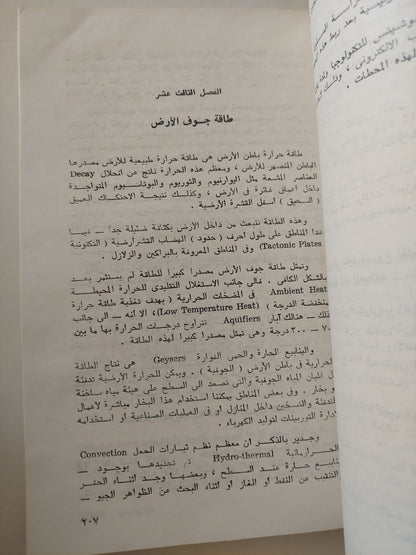 رئيسية بعد ربط هذه
للتكنولوجيا
الالكترونى ، وذلك
لهذه المحطات .
الفصل الثالث عشر
طاقة جوف الأرض
طاقة حرارة باطن الأرض هى طاقة حرارة طبيعية للأرض مصدرها
الباطن المنصهر للأرض ، ومعظم هذه الحرارة ناتج عن انحلال Decay
العناصر المشعة مثل اليوارنيوم والثوريوم والبوتاسيوم المتواجدة
داخل أعماق غائرة فى الأرض ، وكذلك نتيجة الاحتكاك العميق
( السحيق ) أسفل القشرة الأرضية .
وهذه الطاقة تنبعث من داخل الأرض بكثافة ضئيلة جدا ــ فيما
عدا المناطق على طول أحرف ( حدود ) الهضاب القشرأرضية ( التكتونية
Tactonic Plates) وفى المناطق المعروفة بالبراكين والزلازل .
وتمثل طاقة جوف الأرض مصدرا كبيرا للطاقة لم يستثمر بعد
بالشكل الكافى . فالى جانب الاستغلال التقليدى للحرارة المحيطة
Ambient Heat فى المضخات الحرارية ( بهدف تغذية طاقة حرارة
منخفضة الدرجة (Low Temperature Heat)) الا أنه ــ الى جانب
ذلك ــ هنالك آبار Aquifiers تتراوح درجات الحرارة بها ما بين
٧٠ ــ ٣٠٠ درجة وهى تمثل مصدرا كبيرا لهذه الطاقة .
والينابيع الحارة والحمى الفوارة Geysers هى نتاج الطاقة
الحرارية فى باطن الأرض ( الجوفية ) . ويمكن للحرارة الأرضية تدفئة
غليان المياه الجوفية والتى تصعد الى السطح على هيئة مياه ساخنة
و بخار . وفى بعض المناطق يمكننا استخدام هذا البخار مباشرة لأعمال
لتدفئة والتسخين داخل المنازل أو فى العمليات الصناعية أو استخدامه
لادارة التوربينات لتوليد الكهرباء .
وجدير بالذكر أن معظم نظم تيارات الحمل Convection
الحرارمائية Hydro-thermal تم تحديدها بوجود ــ
ينابيع حارة عند السطح ، وبعضها وجد أثناء الحفر
التنقيب عن النفط أو الغاز أو أثناء البحث عن الظواهر الجيو ــ
٢٠٧